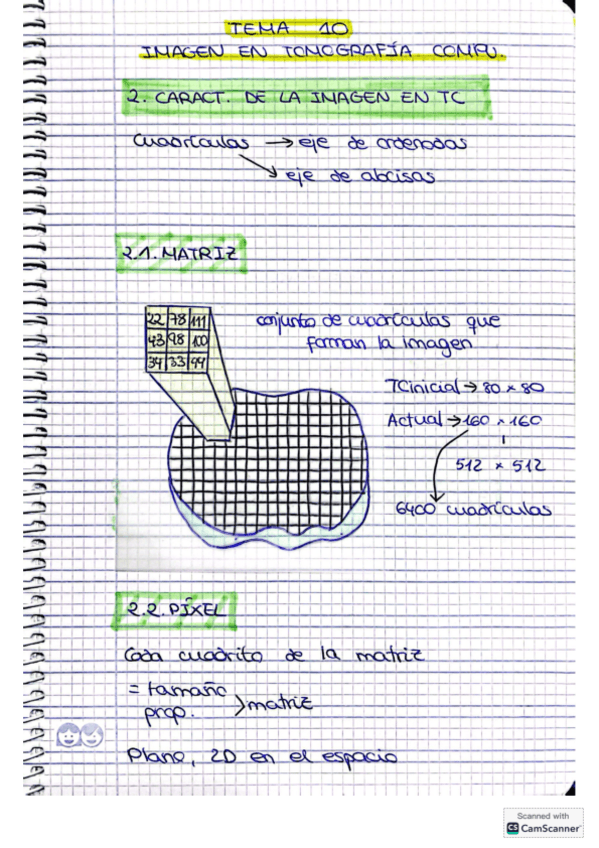 TEMA 10
IMAGEN EN TOMOGRAFÍA COMPU.
2. CARACT. DE LA IMAGEN EN TC
Cuadrículas → eje de ordenadas
eje de abcisas
2.1. MATRIZ
22 78 111
43 98 100
34 33 44
conjunto de cuadrículas que
forman la imagen
TC inicial → 80 × 80
Actual → 160 × 160
512 × 512
6400 cuadrículas
2.2. PÍXEL
Cada cuadrito de la matriz
= tamaño
prop. > matriz
Plano, 2D en el espacio
Scanned with
CS CamScanner